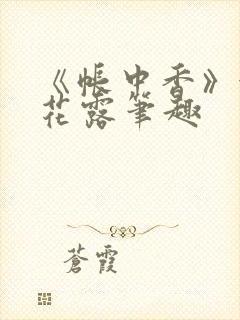 《帐中香》
花露笔趣
苍霞